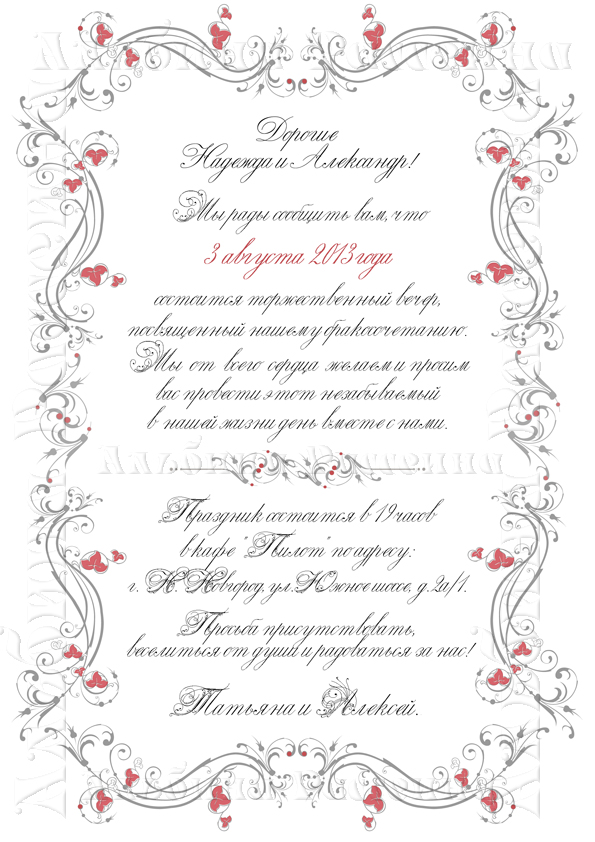 Дорогие
Надежда и Александр!
Мы рады сообщить вам, что
3 августа 2013 года
состоится торжественный вечер,
посвященный нашему бракосочетанию.
Мы от всего сердца желаем и просим
вас провести этот незабываемый
в нашей жизни день вместе с нами.
Праздник состоится в 19 часов
в кафе "Пилот" по адресу:
г. Н. Новгород, ул. Южное шоссе, д. 2а/1.
Просьба присутствовать,
веселиться от души и радоваться за нас!
Татьяна и Алексей.